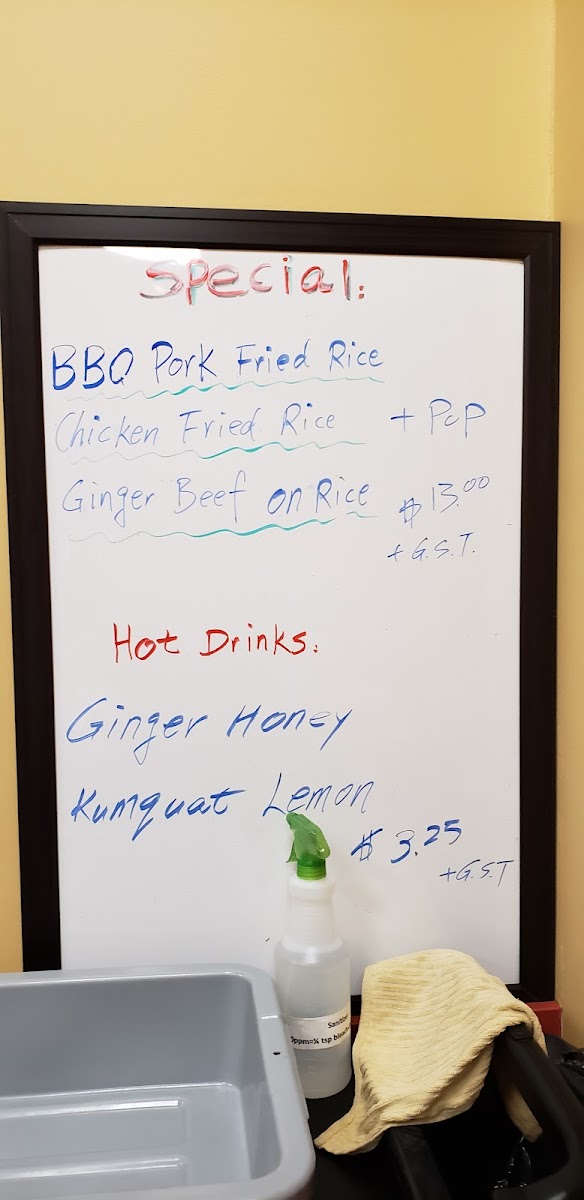 Special:
BBQ Pork Fried Rice
Chicken Fried Rice + Pop
Ginger Beef on Rice $13.00
+ G.S.T.
Hot Drinks:
Ginger Honey
Kumquat Lemon
$3.25
+G.S.T
ppm=¼ tsp